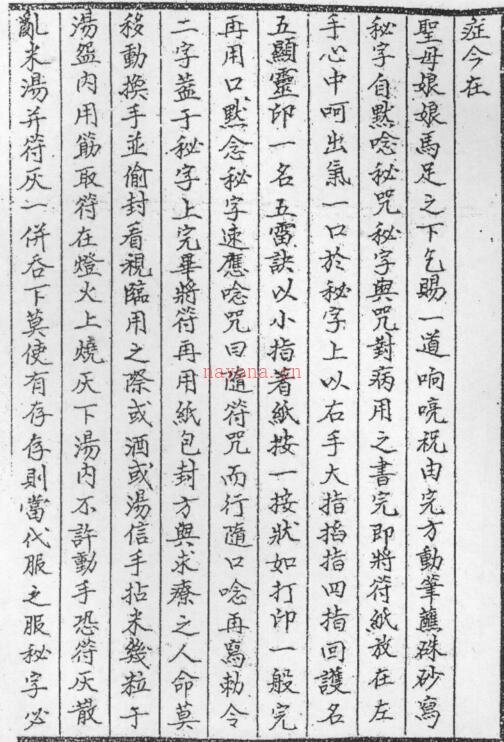 症今在
聖母娘娘馬足之下乞賜一道响喨祝由完方動筆蘸硃砂寫
秘字自默唸秘咒秘字與咒對病用之書完即將符紙放在左
手心中呵出氣一口於秘字上以右手大指搯指四指回護名
五顯靈印一名五雷訣以小指着紙按一按狀如打印一般完
再用口默念秘字速應唸咒曰隨符咒而行隨口唸再寫勅令
二字蓋于秘字上完畢將符再用紙包封方與求療之人命莫
移動換手並偷封看視臨用之際或酒或湯信手拈米幾粒于
湯盌內用筯取符在燈火上燒灰下湯內不許動手恐符灰散
亂米湯并符灰一併吞下莫使有存存則當代服之服秘字必
nayona.cn